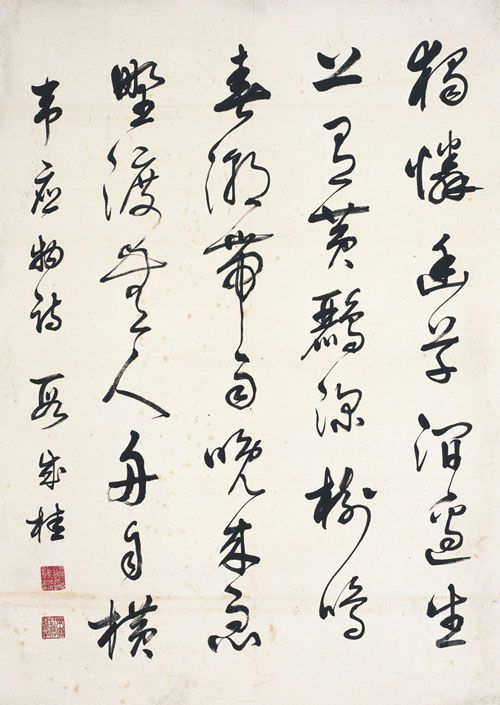 獨憐幽草澗邊生
上有黃鸝深樹鳴
春潮帶雨晚來急
野渡無人舟自橫
韋應物詩 段成桂